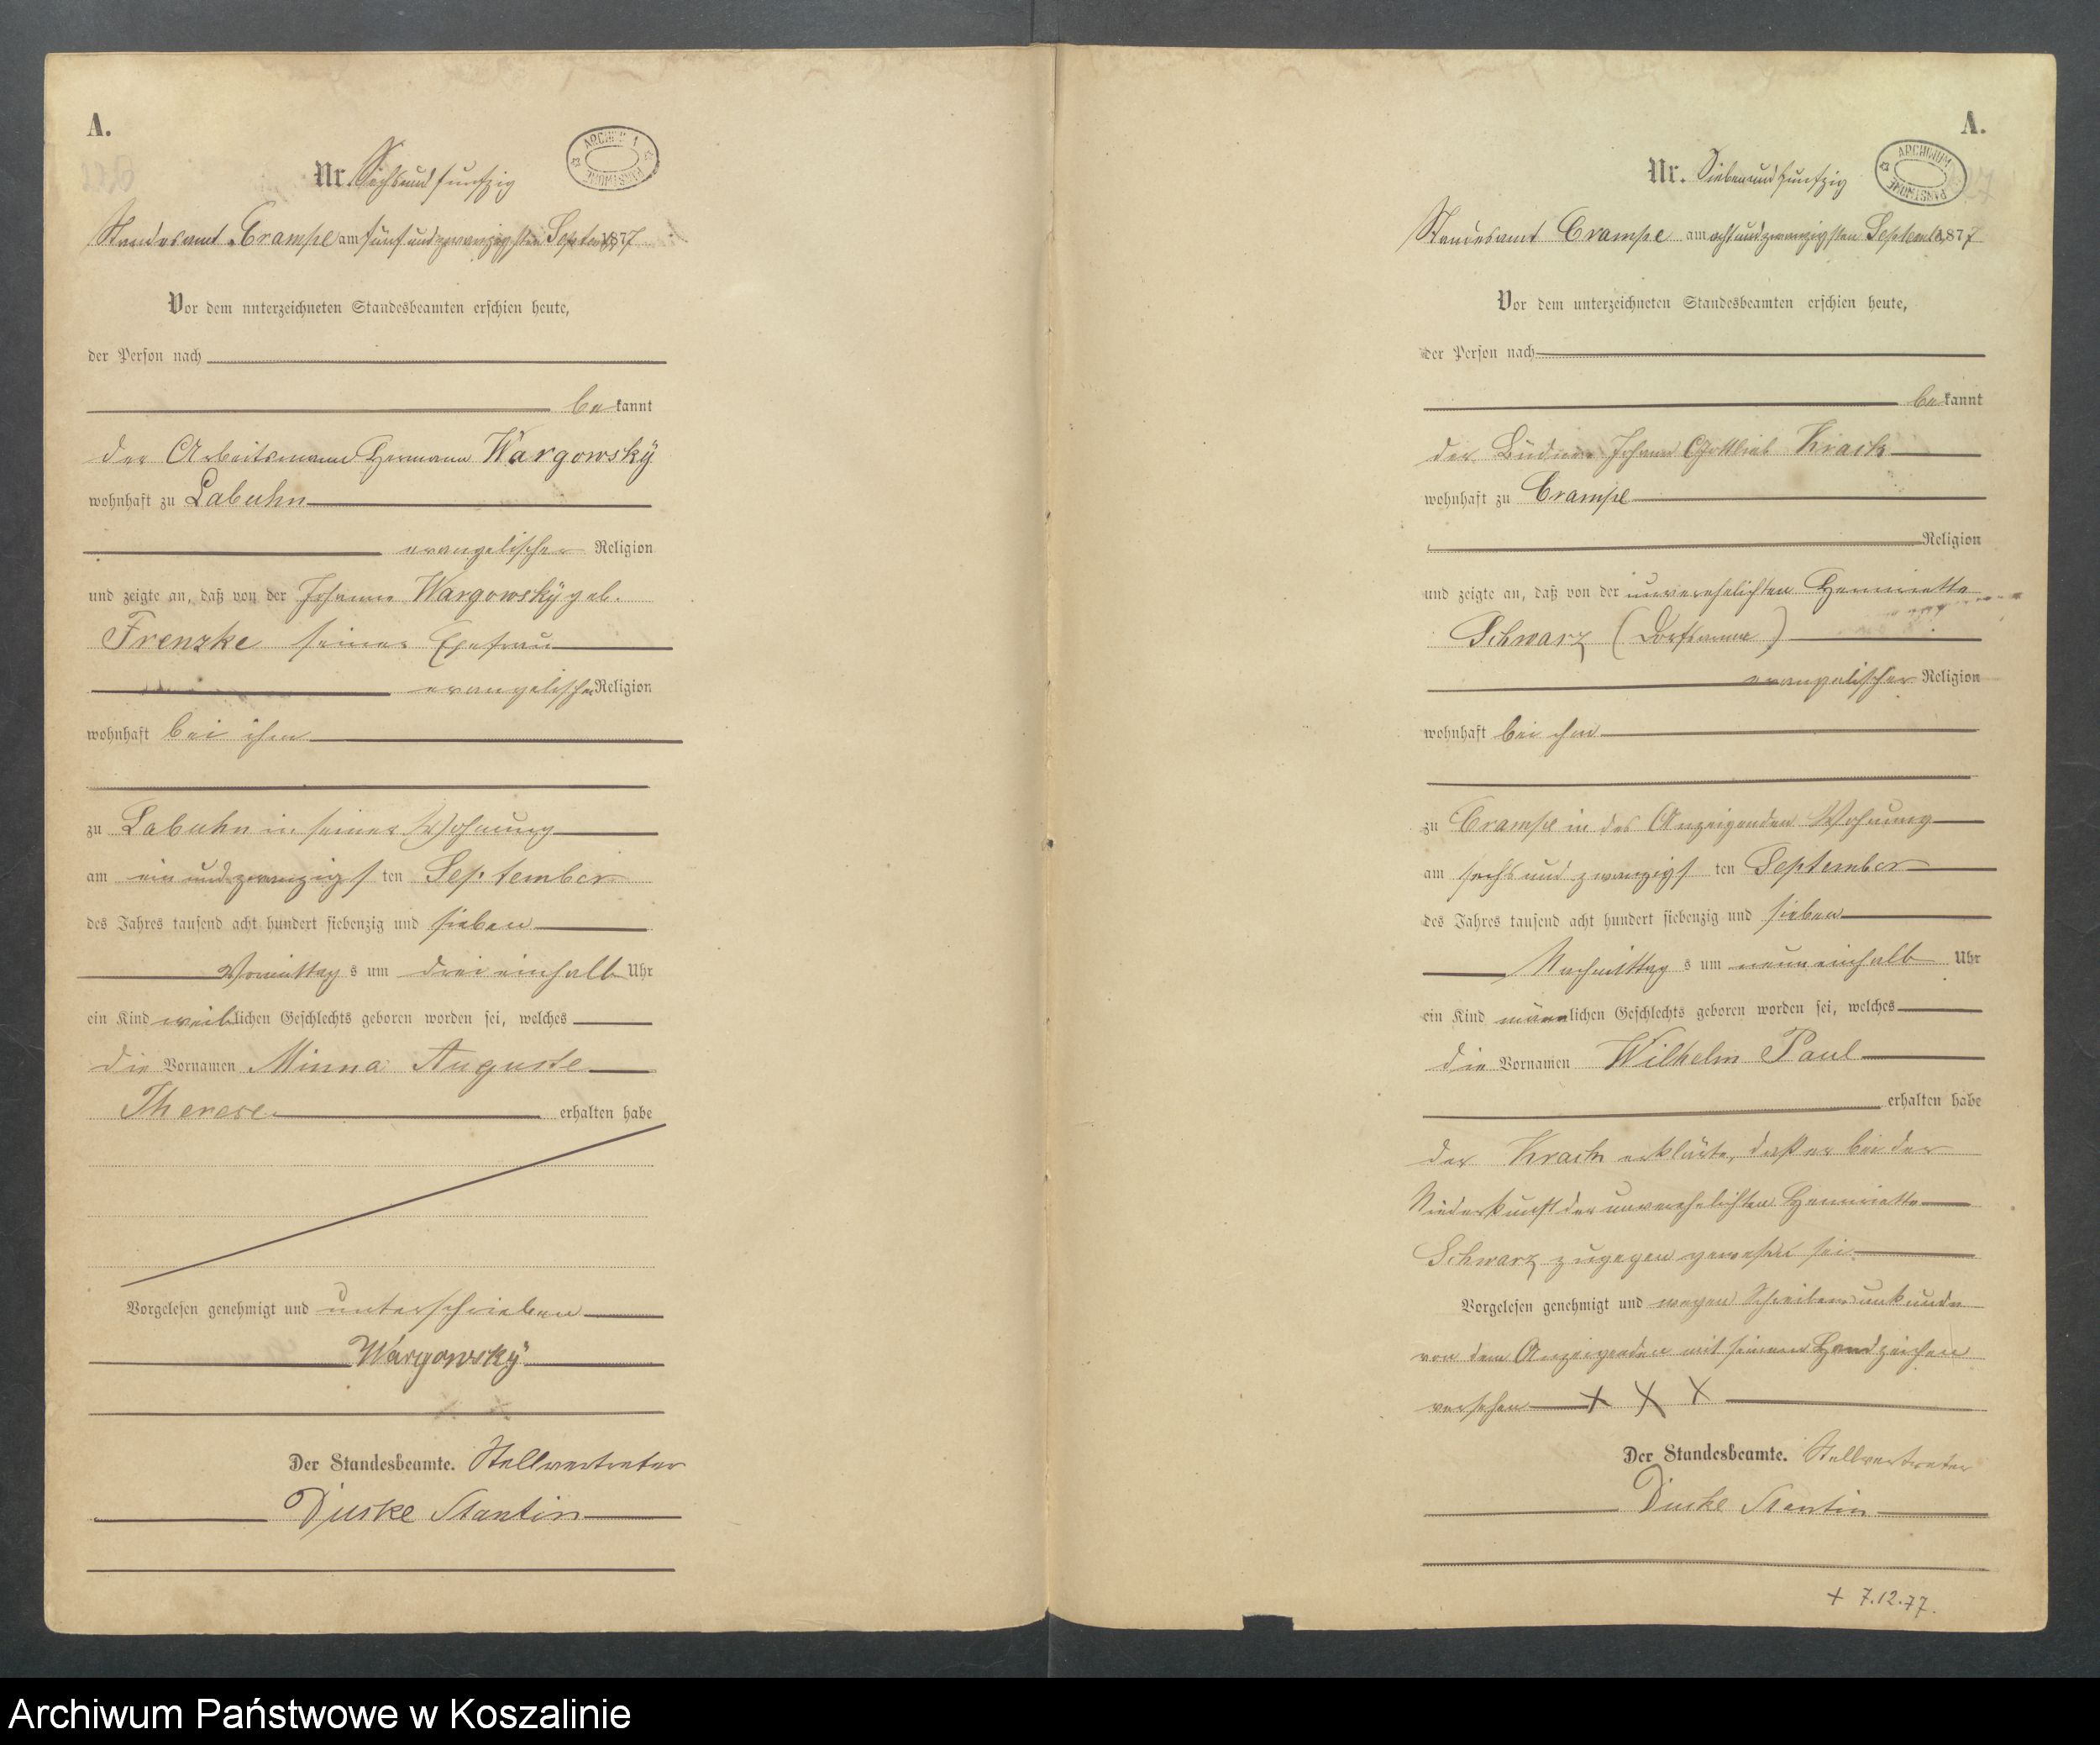 A.
Nr. Sechsundfunfzig
ARCHIWUM PAŃSTWOWE
Standesamt Crampe am fünfundzwanzigsten September 1877
Vor dem unterzeichneten Standesbeamten erschien heute,
der Person nach
bekannt
der Arbeitsmann Hermann Wargowskÿ
wohnhaft zu Labuhn
evangelischer Religion
und zeigte an, daß von der Johanne Wargowskÿ geb.
Frenzke seiner Ehefrau
evangelischer Religion
wohnhaft bei ihm
zu Labuhn in seiner Wohnung
am ein und zwanzigsten September
des Jahres tausend acht hundert siebenzig und sieben
Vormittags um drei einhalb Uhr
ein Kind weiblichen Geschlechts geboren worden sei, welches
die Vornamen Minna Auguste
Therese erhalten habe
Vorgelesen genehmigt und unterschrieben
Wargowskÿ
Der Standesbeamte. Stellvertreter
Duske Stantin
A.
Nr. Siebenundfunfzig
ARCHIWUM PAŃSTWOWE
Standesamt Crampe am achtundzwanzigsten September 1877
Vor dem unterzeichneten Standesbeamten erschien heute,
der Person nach
bekannt
der Büdner Johann Gottlieb Krack
wohnhaft zu Crampe
Religion
und zeigte an, daß von der unverehelichten Henriette
Schwarz (Dorfarme)
evangelischer Religion
wohnhaft bei ihm
zu Crampe in des Anzeigenden Wohnung
am sechs und zwanzigsten September
des Jahres tausend acht hundert siebenzig und sieben
Nachmittags um neun einhalb Uhr
ein Kind männlichen Geschlechts geboren worden sei, welches
die Vornamen Wilhelm Paul
erhalten habe
der Krack erklärte, daß er bei der
Niederkunft der unverehelichten Henriette
Schwarz zugegen gewesen sei
Vorgelesen genehmigt und wegen Schreibensunkunde
von dem Anzeigenden mit seinem Handzeichen
versehen + X X
Der Standesbeamte. Stellvertreter
Duske Stantin
+ 7.12.77.
Archiwum Państwowe w Koszalinie